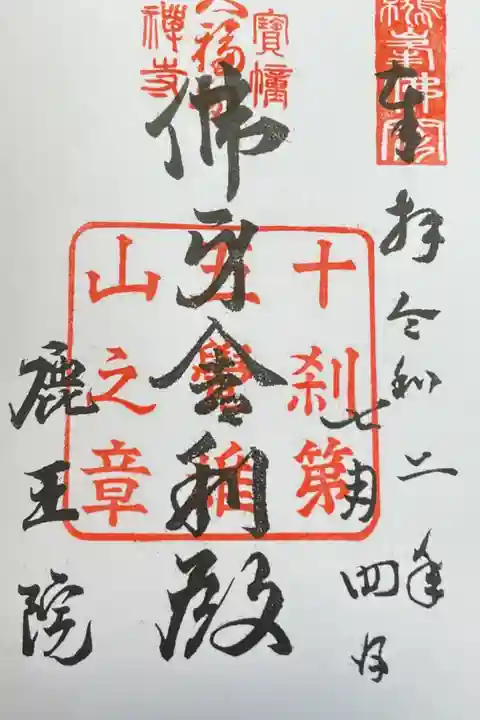 奉拝 令和二年
七月四日
佛牙舎利殿
鹿王院
寶幢
禅寺
十刹第
五覺雄
山之章